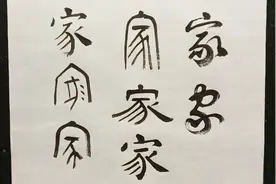 家家
家家家
家家家